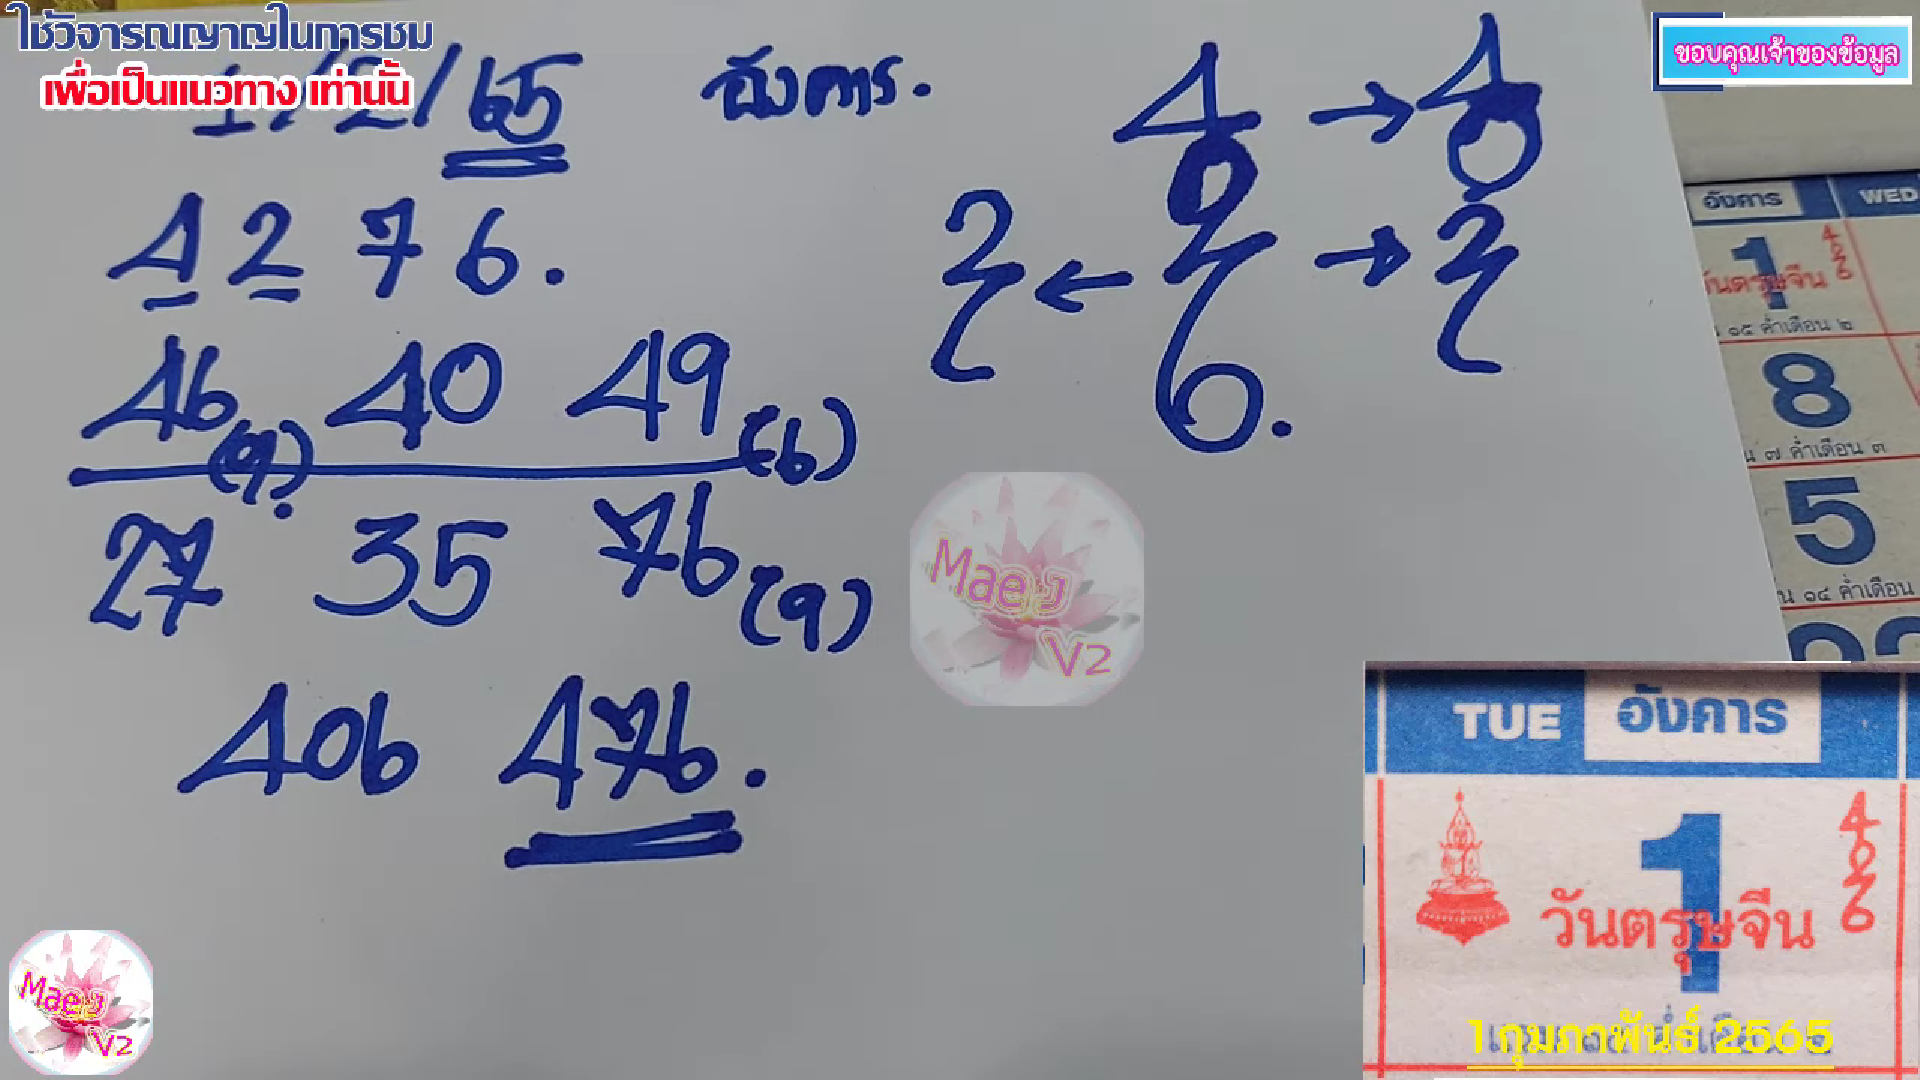 ใช้วิจารณญาณในการชม
เพื่อเป็นแนวทาง เท่านั้น
ขอบคุณเจ้าของข้อมูล
1/2/65 อังคาร.
4 2 7 6.
46 (9). 40 49 (6)
27 35 76 (9)
406 476.
4 → 4
0 0
2 ← 2 → 2
6.
อังคาร WED
1
วันตรุษจีน
๑๕ ค่ำเดือน ๒
8
๗ ค่ำเดือน ๓
5
๑๔ ค่ำเดือน
Mae J
V2
TUE อังคาร
1
4
0
2
6
วันตรุษจีน
1 กุมภาพันธ์ 2565
Mae J
V2